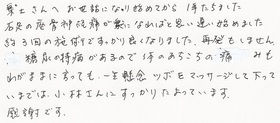 さんへ お世話になり始めてから 1年たちました
右足の座骨神経痛が楽になればと思い通い始めました
約3回の施術ですっかり良くなりました。再発もしません。
糖尿の持病があるので体のあちこちの痛みも
わがままに言っても、一生懸命 ツボをマッサージして下って
いまでは、小林さんにすっかりたよっています。
感謝です。